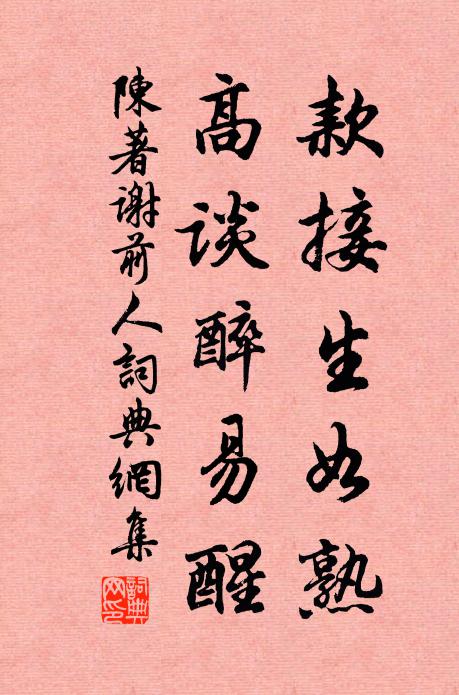 款接生如熟
高談醉易醒
陳著謝前人詞典網集
詞典
网印